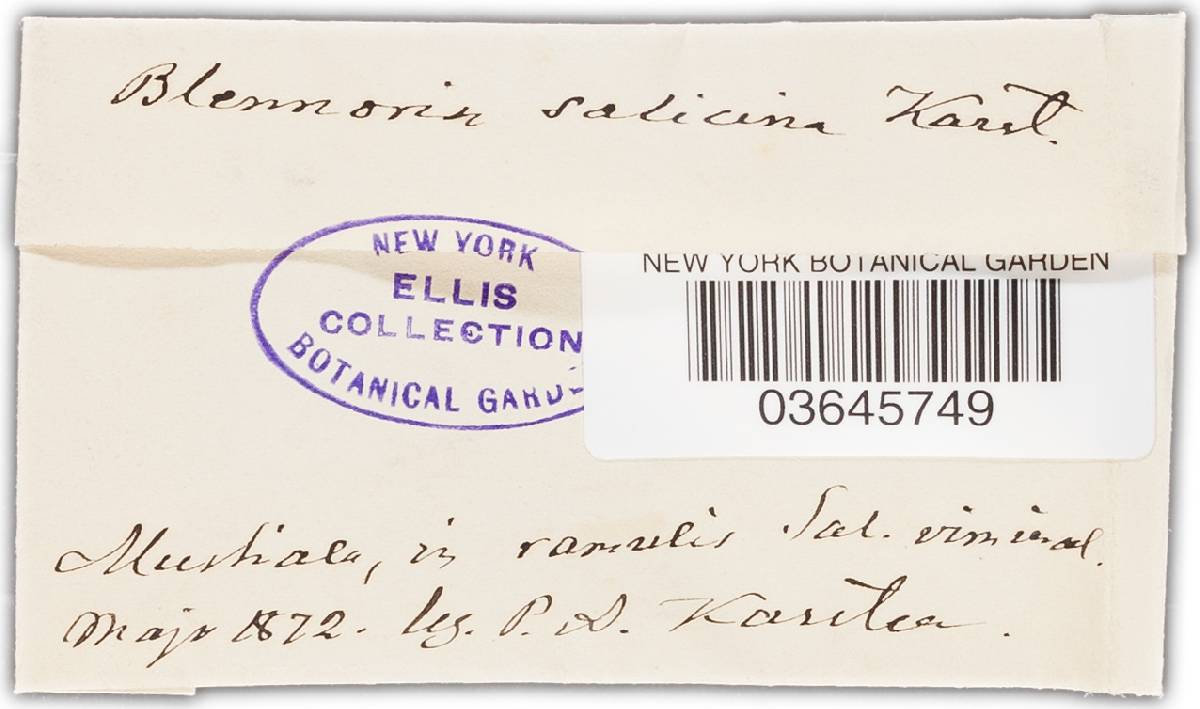 Blennoria salicina Karst.
NEW YORK
ELLIS
COLLECTION
BOTANICAL GARDE
NEW YORK BOTANICAL GARDEN
03645749
Mustiala, in ramulis Sal. viminal.
Majo 1872. leg. P. A. Karsten.